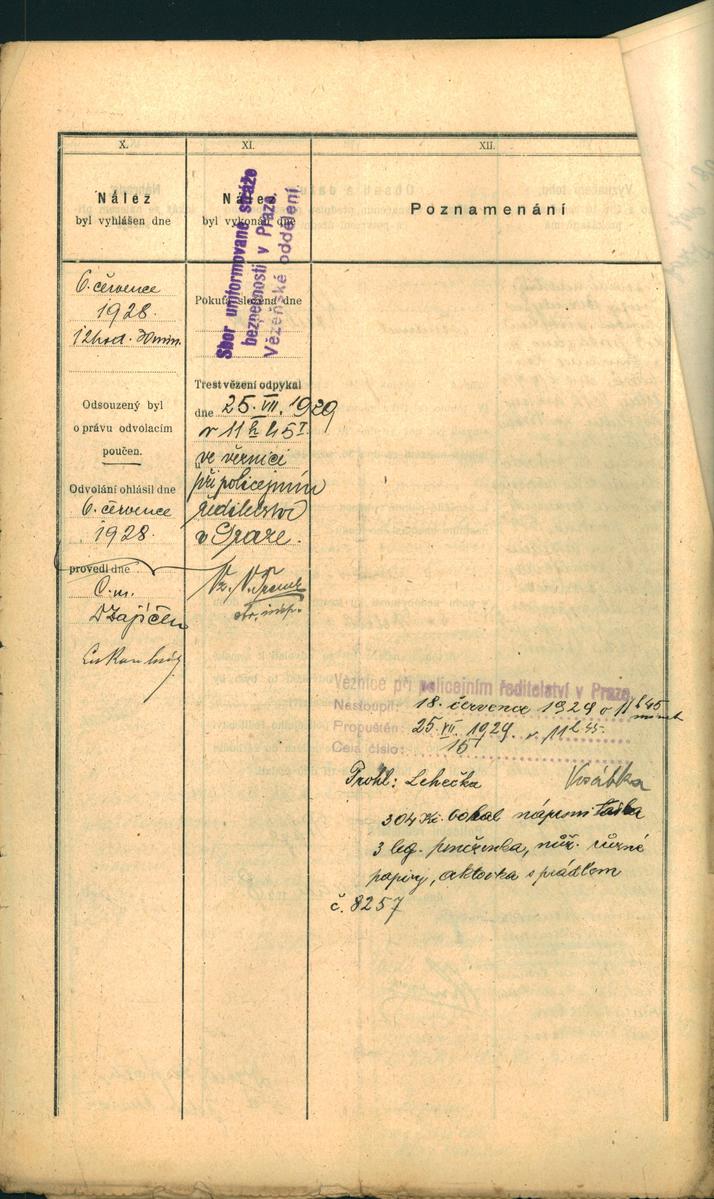 X.
Nález
byl vyhlášen dne
6. července
1928.
12 hod. 30 min.
Odsouzený byl
o právu odvolacím
poučen.
Odvolání ohlásil dne
6. července
1928.
provedl dne
XI.
Nález
byl vykonán dne
Sbor uniformované stráže
bezpečnosti v Praze.
Vězeňské oddělení.
Pokuta složena dne
Trest vězení odpykal
dne 25. VII. 1929
v 11 h 45
ve věznici
při policejním
ředitelství
v Praze.
XII.
Poznamenání
Věznice při policejním ředitelství v Praze
Nastoupil: 18. července 1929 v 11 h 45
Propuštěn: 25. VII. 1929. v 11 h 45.
Cela číslo: 15
Prohl: Lehečka
304 Kč.
3 leg. peněženka, nůž. různé
papíry, aktovka s prádlem
č. 8257